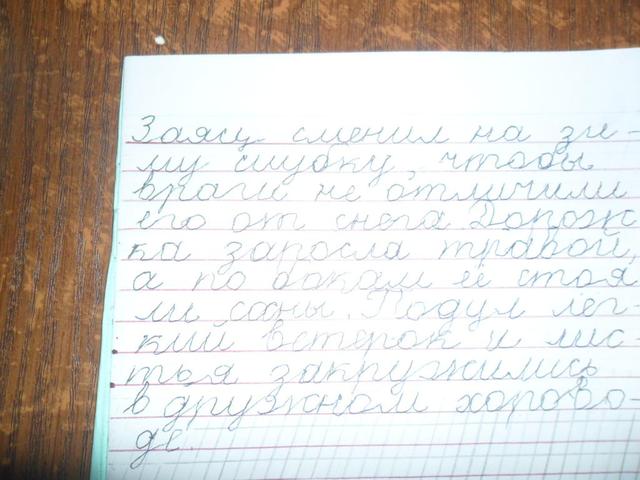 Заясц сменил на зи-
му шубку, чтобы
враги не отличили
его от снега. Дорож
ка заросла травой,
а по бокам её стоя
ли сосны. Подул лёг-
кий ветерок и лис-
тья закружились
в дружном хорово-
де.